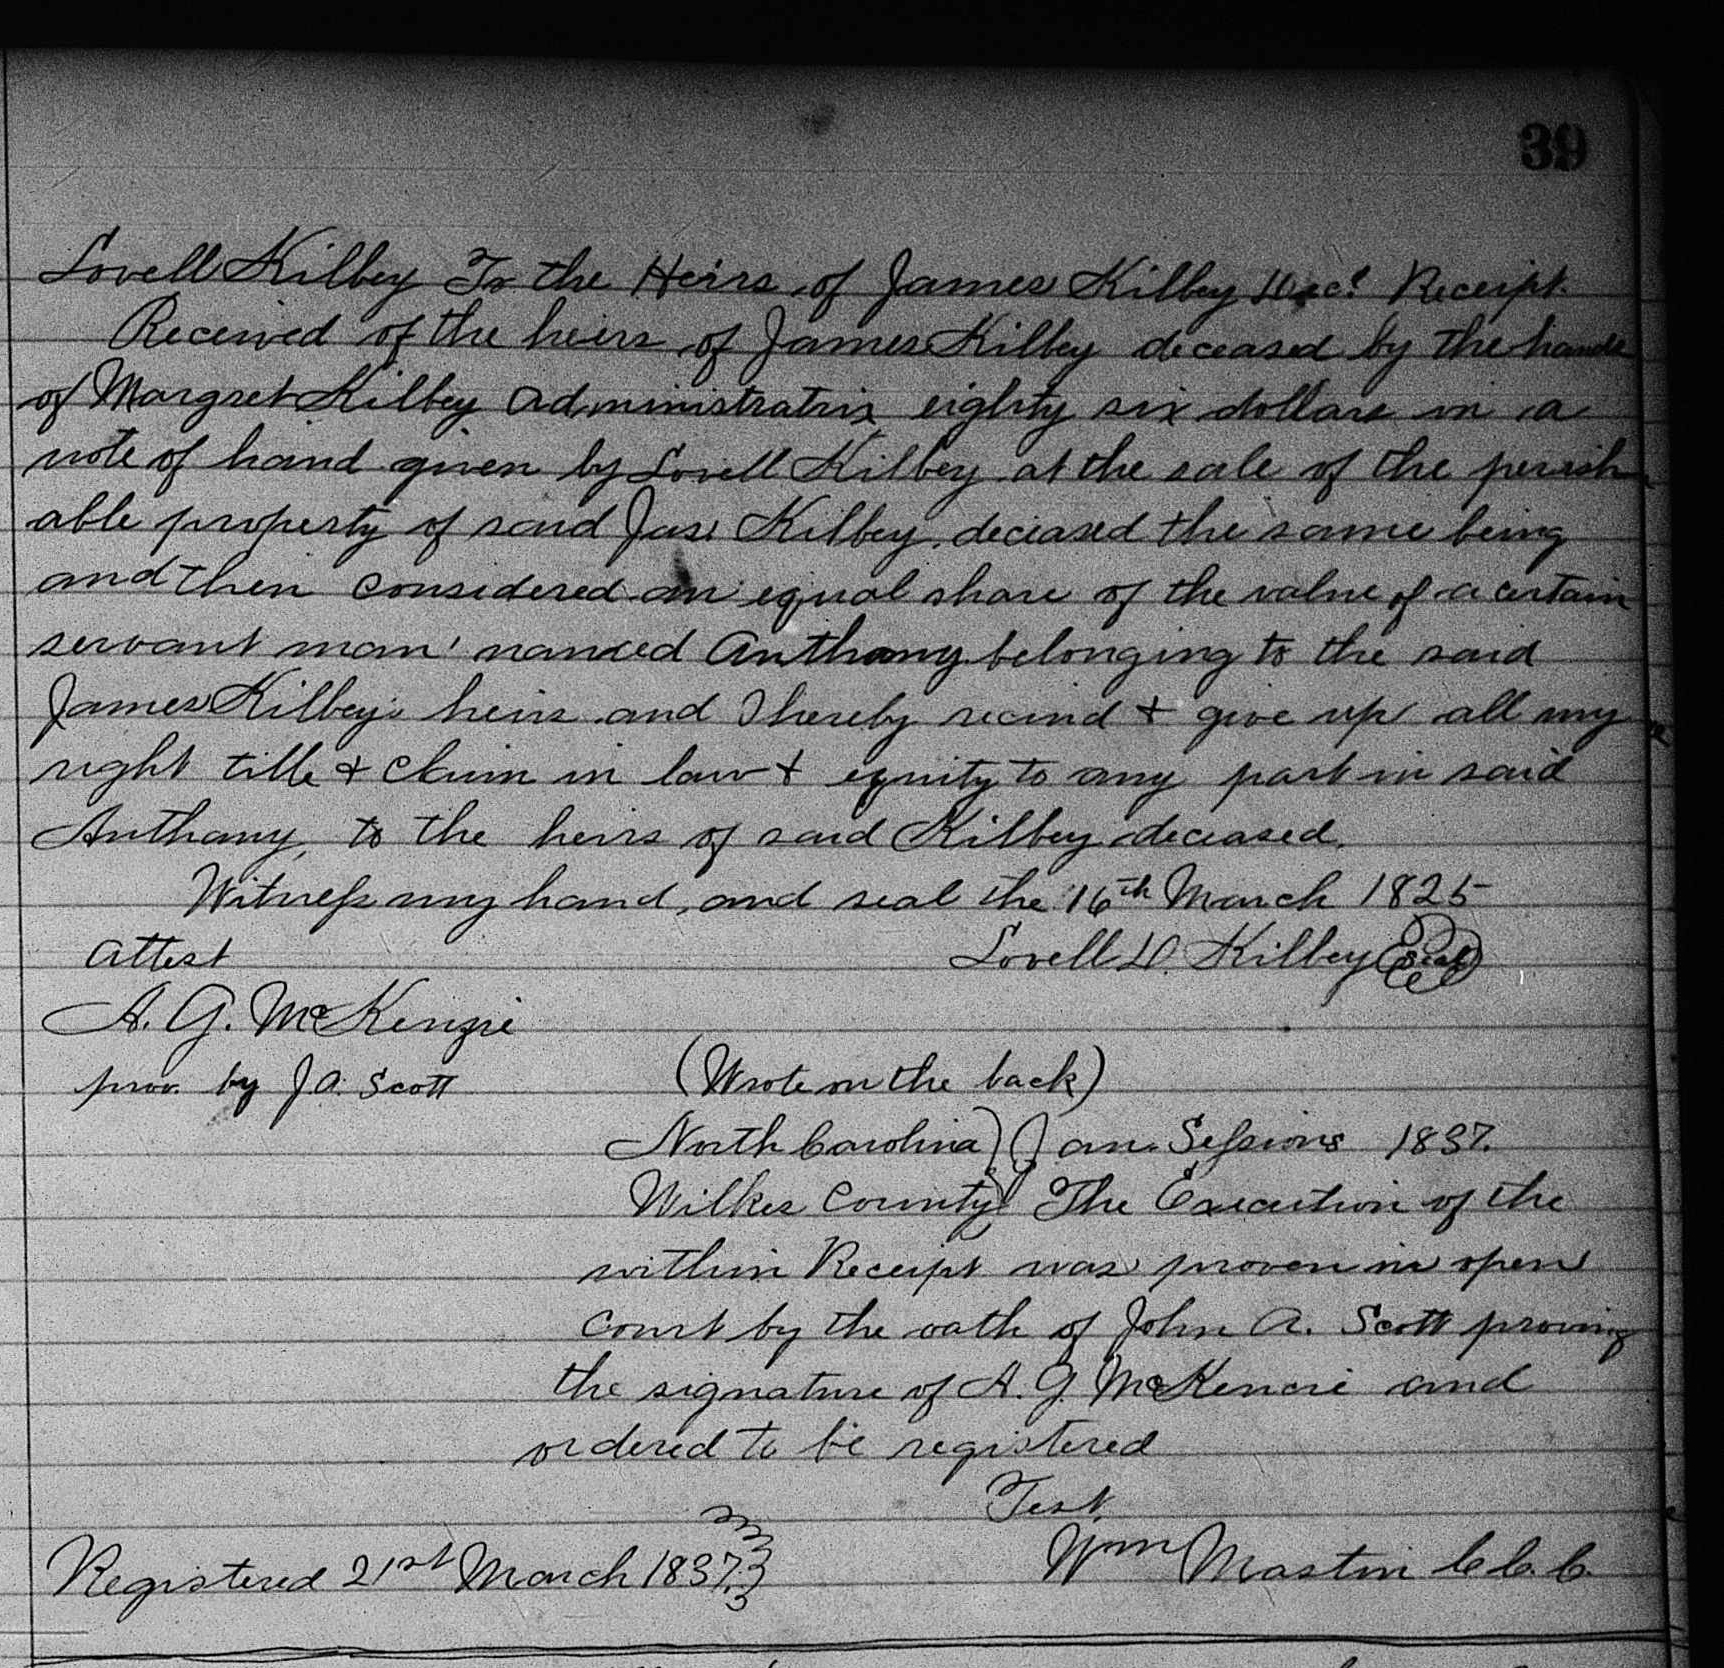 39
Lovell Kilbey To the Heirs of James Kilbey Decd Receipt.
Received of the heirs of James Kilbey deceased by the hands
of Margret Kilbey administratrix eighty six dollars in a
note of hand given by Lovell Kilbey at the sale of the perish
able property of said Jas. Kilbey deceased the same being
and then considered an equal share of the value of a certain
servant man named Anthony belonging to the said
James Kilbeys heirs and I hereby recind & give up all my
right title & claim in law & equity to any part in said
Anthany, to the heirs of said Kilbey deceased.
Witness my hand, and seal the 16th March 1825
Attest Lovell D. Kilbey (Seal)
A. G. McKenzie
prov. by J A. Scott (Wrote on the back)
North Carolina) Jan. Sessions 1837.
Wilkes County) The Execution of the
within Receipt was proven in open
Court by the oath of John A. Scott proving
the signature of A. G. McKencie and
ordered to be registered
Test.
Registered 21st March 1837. Wm Mastin C. C. C.